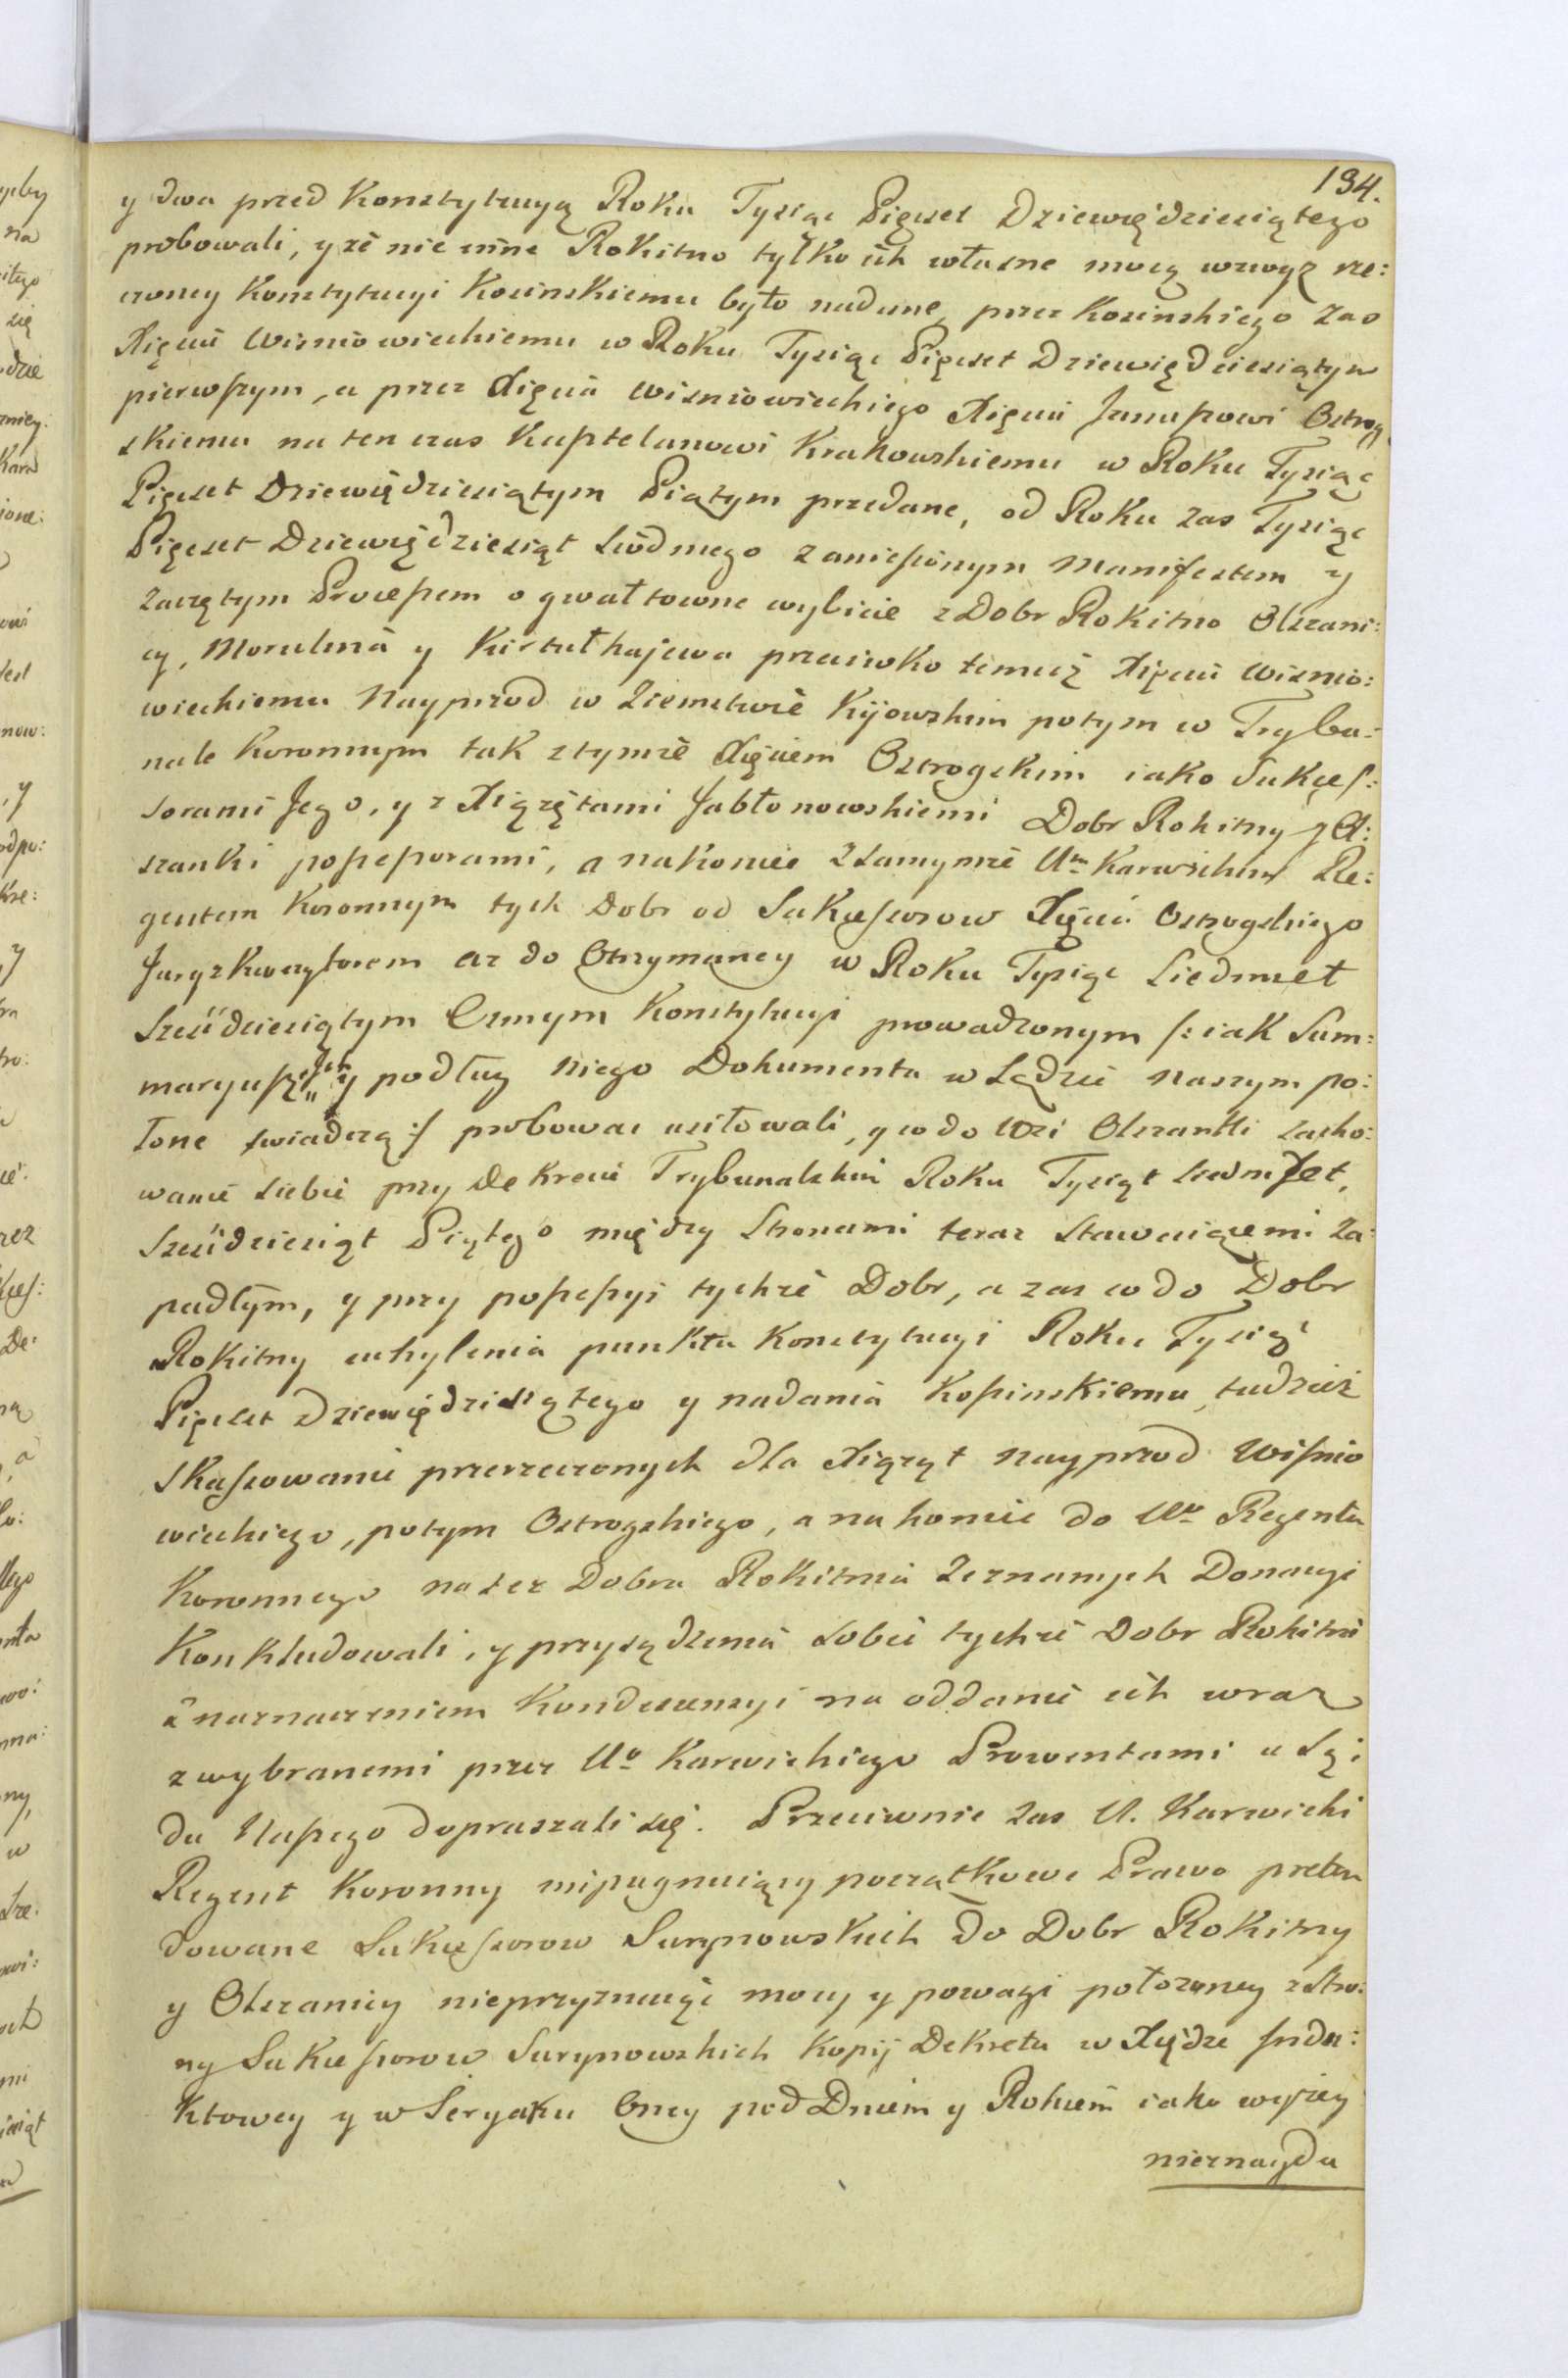 194.
y dwa przed Konstytucyą Roku Tysiąc Pięcset Dziewięćdziesiątego
probowali, y że nie inne Rokitno tylko ich własne mocą wzwyz rze:
czoney Konstytucyi Kosinskiemu było nadane, przez Kosinskiego zas
Xięciu Wisniowieckiemu w Roku Tysiąc Pięcset Dziewięćdziesiątym
pierwszym, a przez Xięcia Wisniowieckiego Xięciu Januszowi Ostrog
skiemu na ten czas Kasztelanowi Krakowskiemu w Roku Tysiąc
Pięcset Dziewięćdziesiątym Piątym przedane, od Roku zas Tysiąc
Pięcset Dziewięćdziesiąt Siodmego zaniesionym Manifestem y
zaczętym Processem o gwałtowne wybicie z Dobr Rokitno Olszani:
cy, Moruluia y przeciwko temuż Xięciu Wisnio:
wieckiemu Nayprzod w Ziemstwie Kijowskim potym w Trybu:
nale Koronnym tak z tymże Xięciem Ostrogskim iako Sukces:
sorami Jego, y z Xiążętami Jabłonowskiemi Dobr Rokitny y Ol:
szanki possessorami, a nakoniec z samymże Um Karwickim Re:
gentem Koronnym tych Dobr od Sukcessorow Xięcia Ostrogskiego
Juryzkwezytorem az do Otrzymaney w Roku Tysiąc Siedmset
Sześćdziesiątym Osmym Konstytucyi prowadzonym /: iak Sum:
maryusz y podług niego Dokumenta w Sądzie naszym po:
łone swiadczą :/ probowac usiłowali, y co do Wsi Olszanki zacho:
wanie siebie przy Dekrecie Trybunalskim Roku Tysiąt siedmset,
Sześćdziesiąt Piątego między Stronami teraz stawaiącemi za:
padłym, y przy possessyi tychże Dobr, a zas co do Dobr
Rokitny uchylenia punktu Konstytucyi Roku Tysiąc
Pięcset Dziewięćdziesiątego y nadania Kosinskiemu, tudzież
Skassowanie przerzeczonych dla Xiążąt nayprzod Wisnio
wieckiego, potym Ostrogskiego, a nakoniec do Uo Regenta
Koronnego na też Dobra Rokitnia zeznanych Donacyi
Konkludowali, y przysądzenia sobie tychże Dobr Rokitni
z naznaczeniem Kondescensyi na oddanie ich wraz
z wybranemi przez Uo Karwickiego Prowentami u Są:
du Naszego dopraszali się. Przeciwnie zas U. Karwicki
Regent Koronny impugnuiący początkowe Prawo preten
dowane Sukcessorow Surynowskich do Dobr Rokitny
y Olszanicy nieprzyznaiąc mocy y powagi położoney z stro:
ny Sukcessorow Surynowskich Kopij Dekretu w Xiędze Indu:
Ktowey y w Seryaku Oney pod Dniem y Rokiem iako wyżey
nieznayda